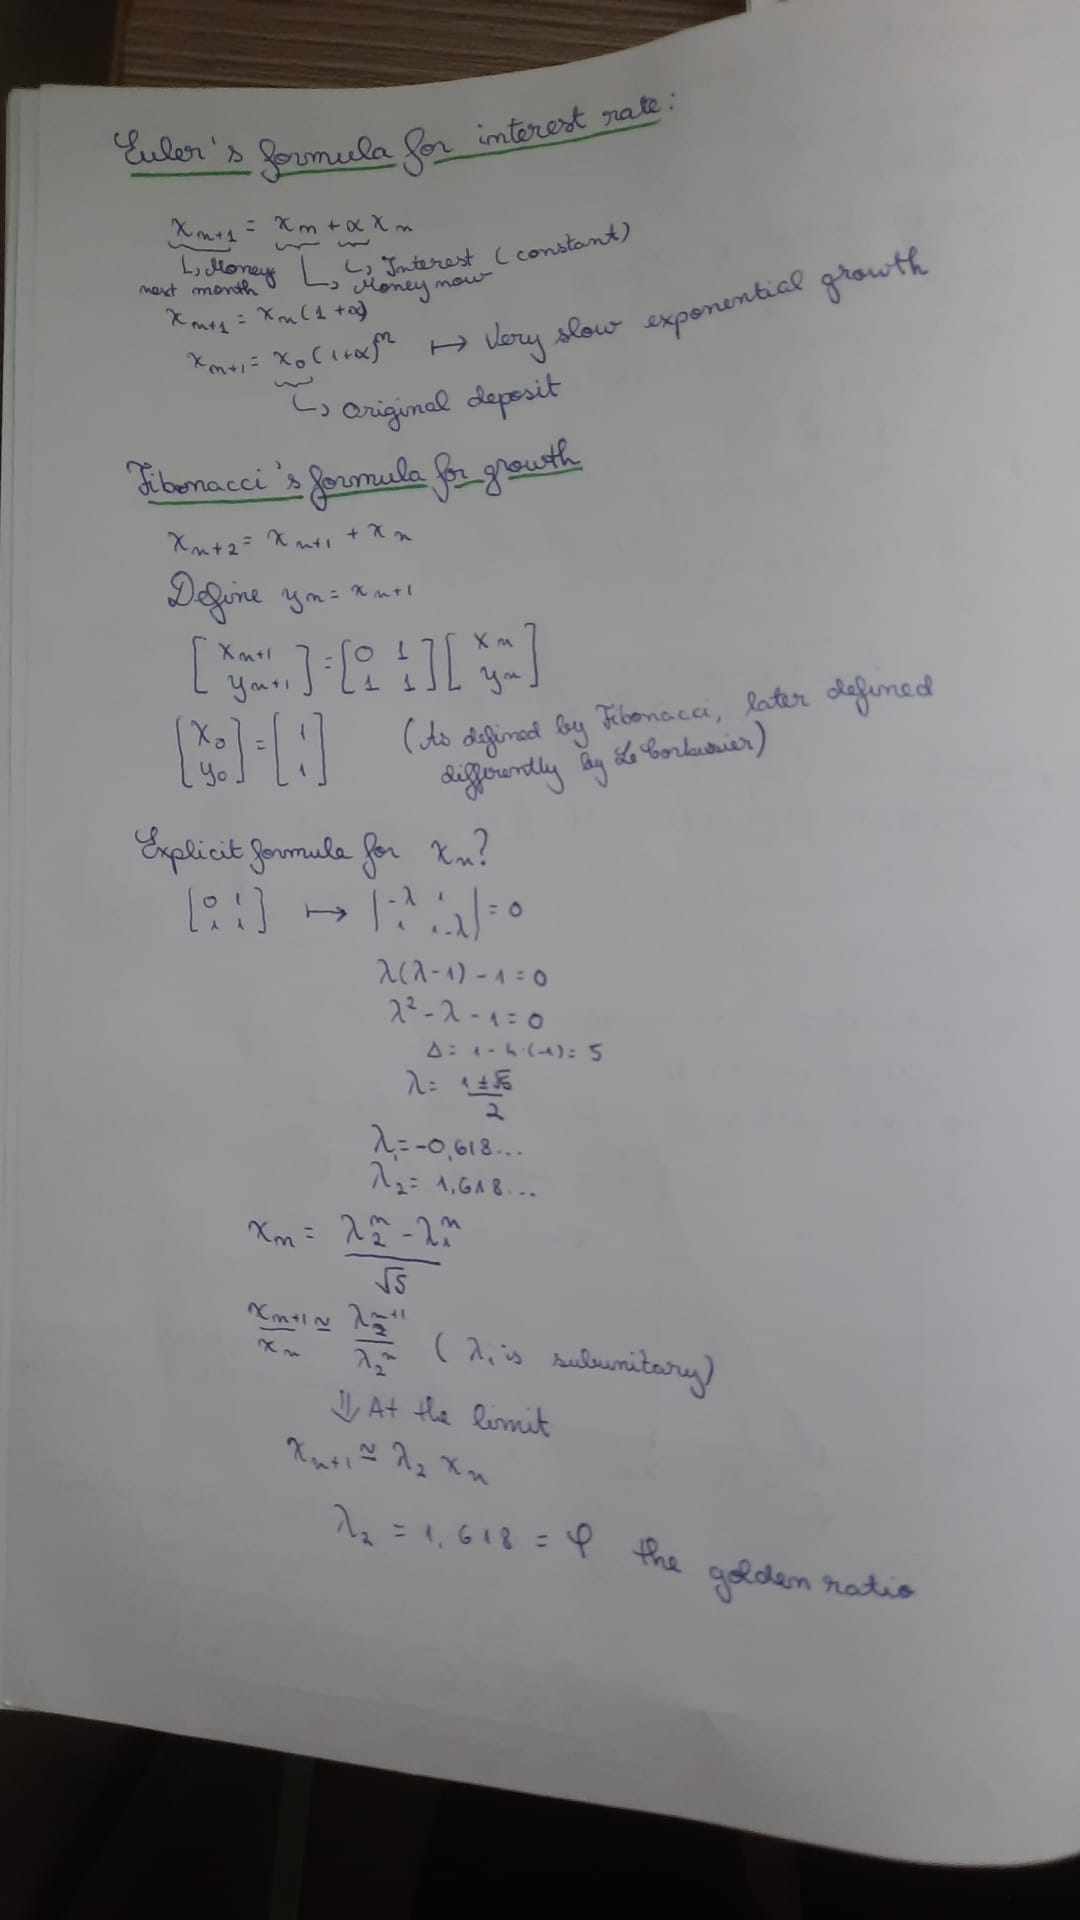 Euler's formula for interest rate:
x_{n+1} = x_n + α x_n
↳ Money next month ↳ Money now ↳ Interest (constant)
x_{n+1} = x_n (1+α)
x_{n+1} = x_0 (1+α)^n ↦ Very slow exponential growth
↳ original deposit
Fibonacci's formula for growth
x_{n+2} = x_{n+1} + x_n
Define y_n = x_{n+1}
[x_{n+1} y_{n+1}] = [0 1 1 1] [x_n y_n]
[x_0 y_0] = [1 1] (As defined by Fibonacci, later defined
differently by Le Corbusier)
Explicit formula for x_n?
[0 1 1 1] ↦ |-λ 1 1 1-λ| = 0
λ(λ-1) - 1 = 0
λ² - λ - 1 = 0
Δ = 1 - 4·(-1) = 5
λ = (1±√5)/2
λ_1 = -0,618...
λ_2 = 1,618...
x_n = (λ_2^n - λ_1^n)/√5
x_{n+1}/x_n ≃ λ_2^{n+1}/λ_2^n (λ_1 is subunitary)
⇓ At the limit
x_{n+1} ≃ λ_2 x_n
λ_2 = 1,618 = φ the golden ratio